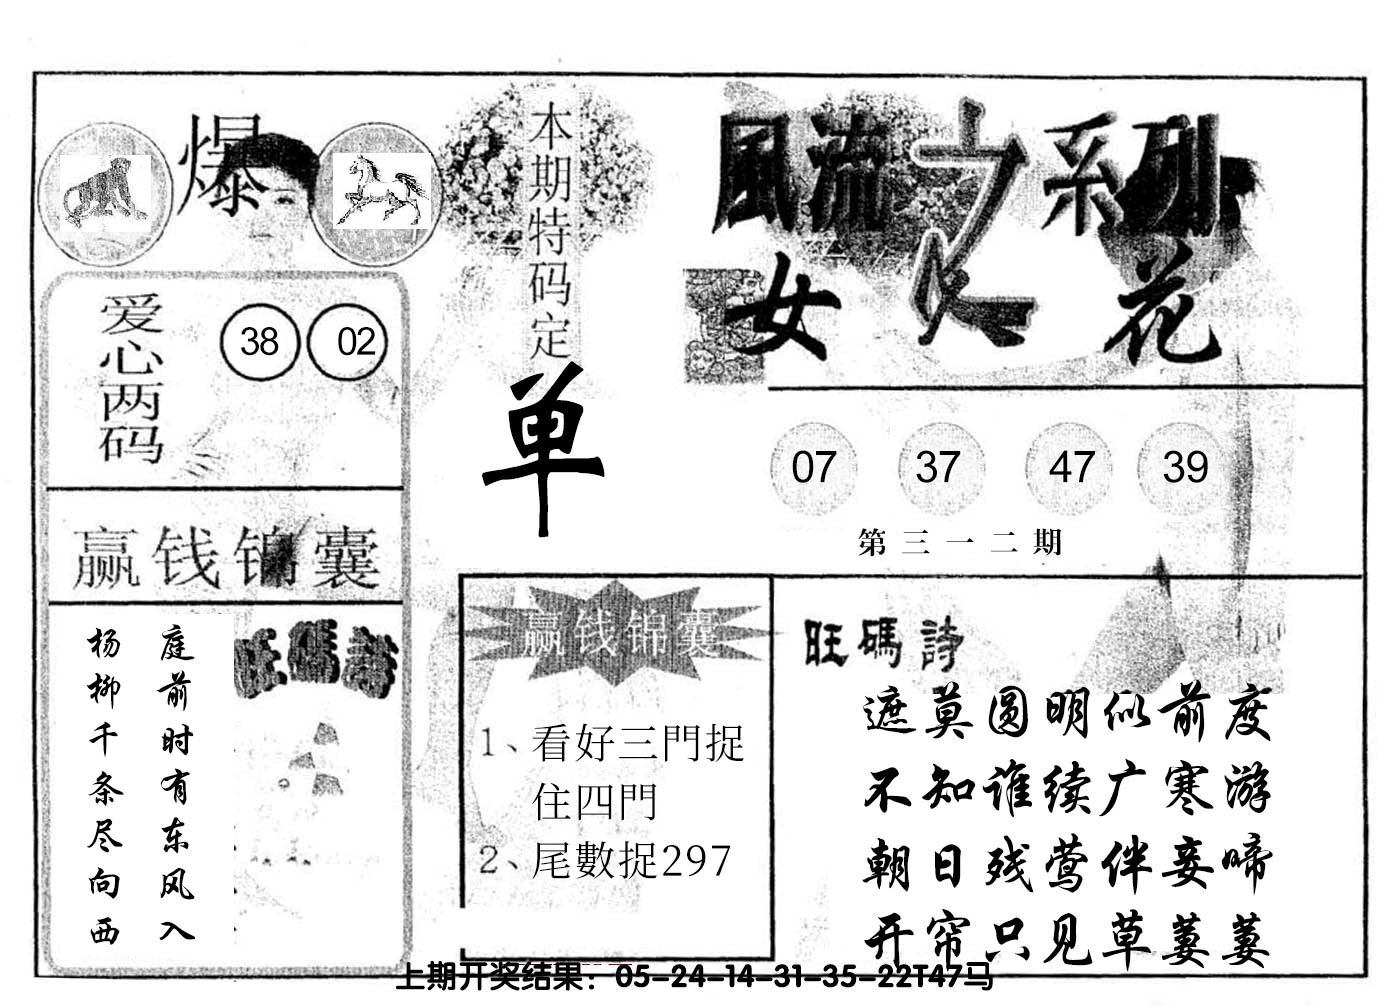 爆
本期特码定
单
風流之系列
女人花
爱心两码
38 02
07 37 47 39
第三一二期
赢钱锦囊
庭前时有东风入
杨柳千条尽向西
旺碼詩
赢钱锦囊
1、看好三門捉
住四門
2、尾數捉297
旺碼詩
遮莫圆明似前度
不知谁续广寒游
朝日残莺伴妾啼
开帘只见草萋萋
上期开奖结果：05-24-14-31-35-22T47马